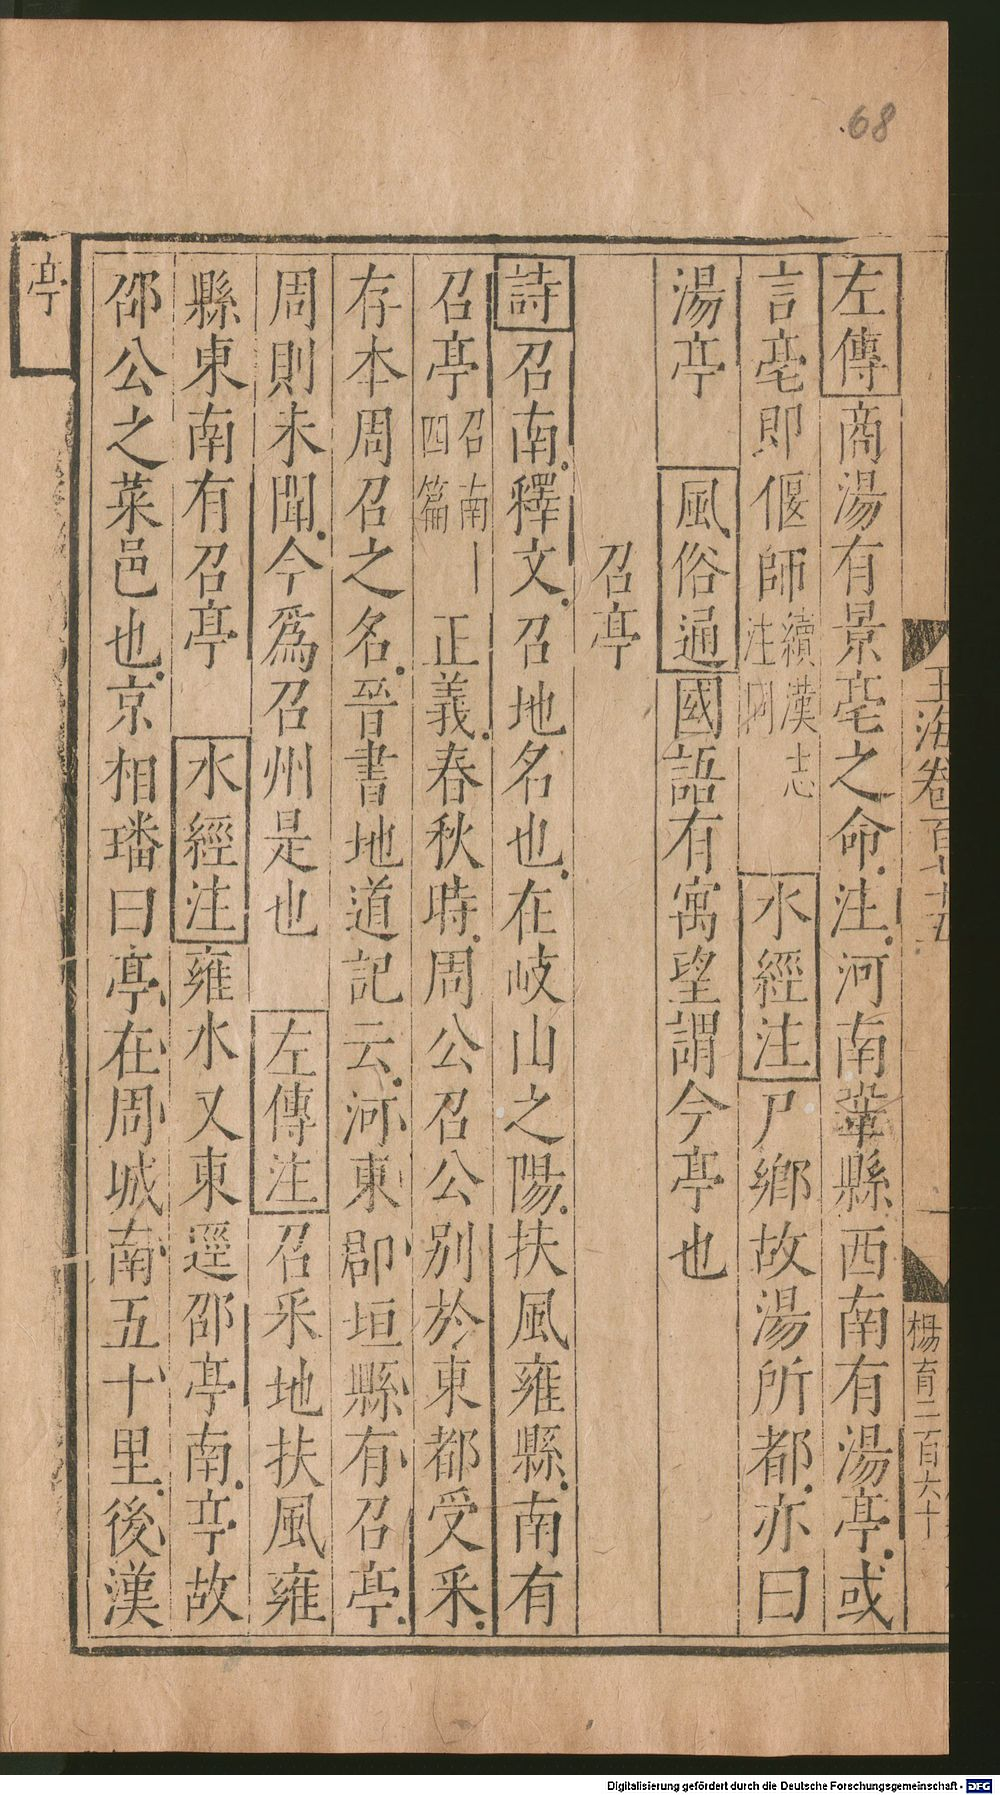 68
玉海卷百七十五
楊育二百六十
左傳商湯有景亳之命注河南鞏縣西南有湯亭或
言亳即偃師續漢志注同水經注尸鄉故湯所都亦曰
湯亭 風俗通國語有寓望謂今亭也
召亭
詩召南釋文召地名也在岐山之陽扶風雍縣南有
召亭召南四篇 正義春秋時周公召公別於東都受采
存本周召之名晉書地道記云河東郡垣縣有召亭
周則未聞今為召州是也 左傳注召采地扶風雍
縣東南有召亭 水經注雍水又東逕邵亭南亭故
邵公之菜邑也京相璠曰亭在周城南五十里後漢
亭
Digitalisierung gefördert durch die Deutsche Forschungsgemeinschaft - DFG